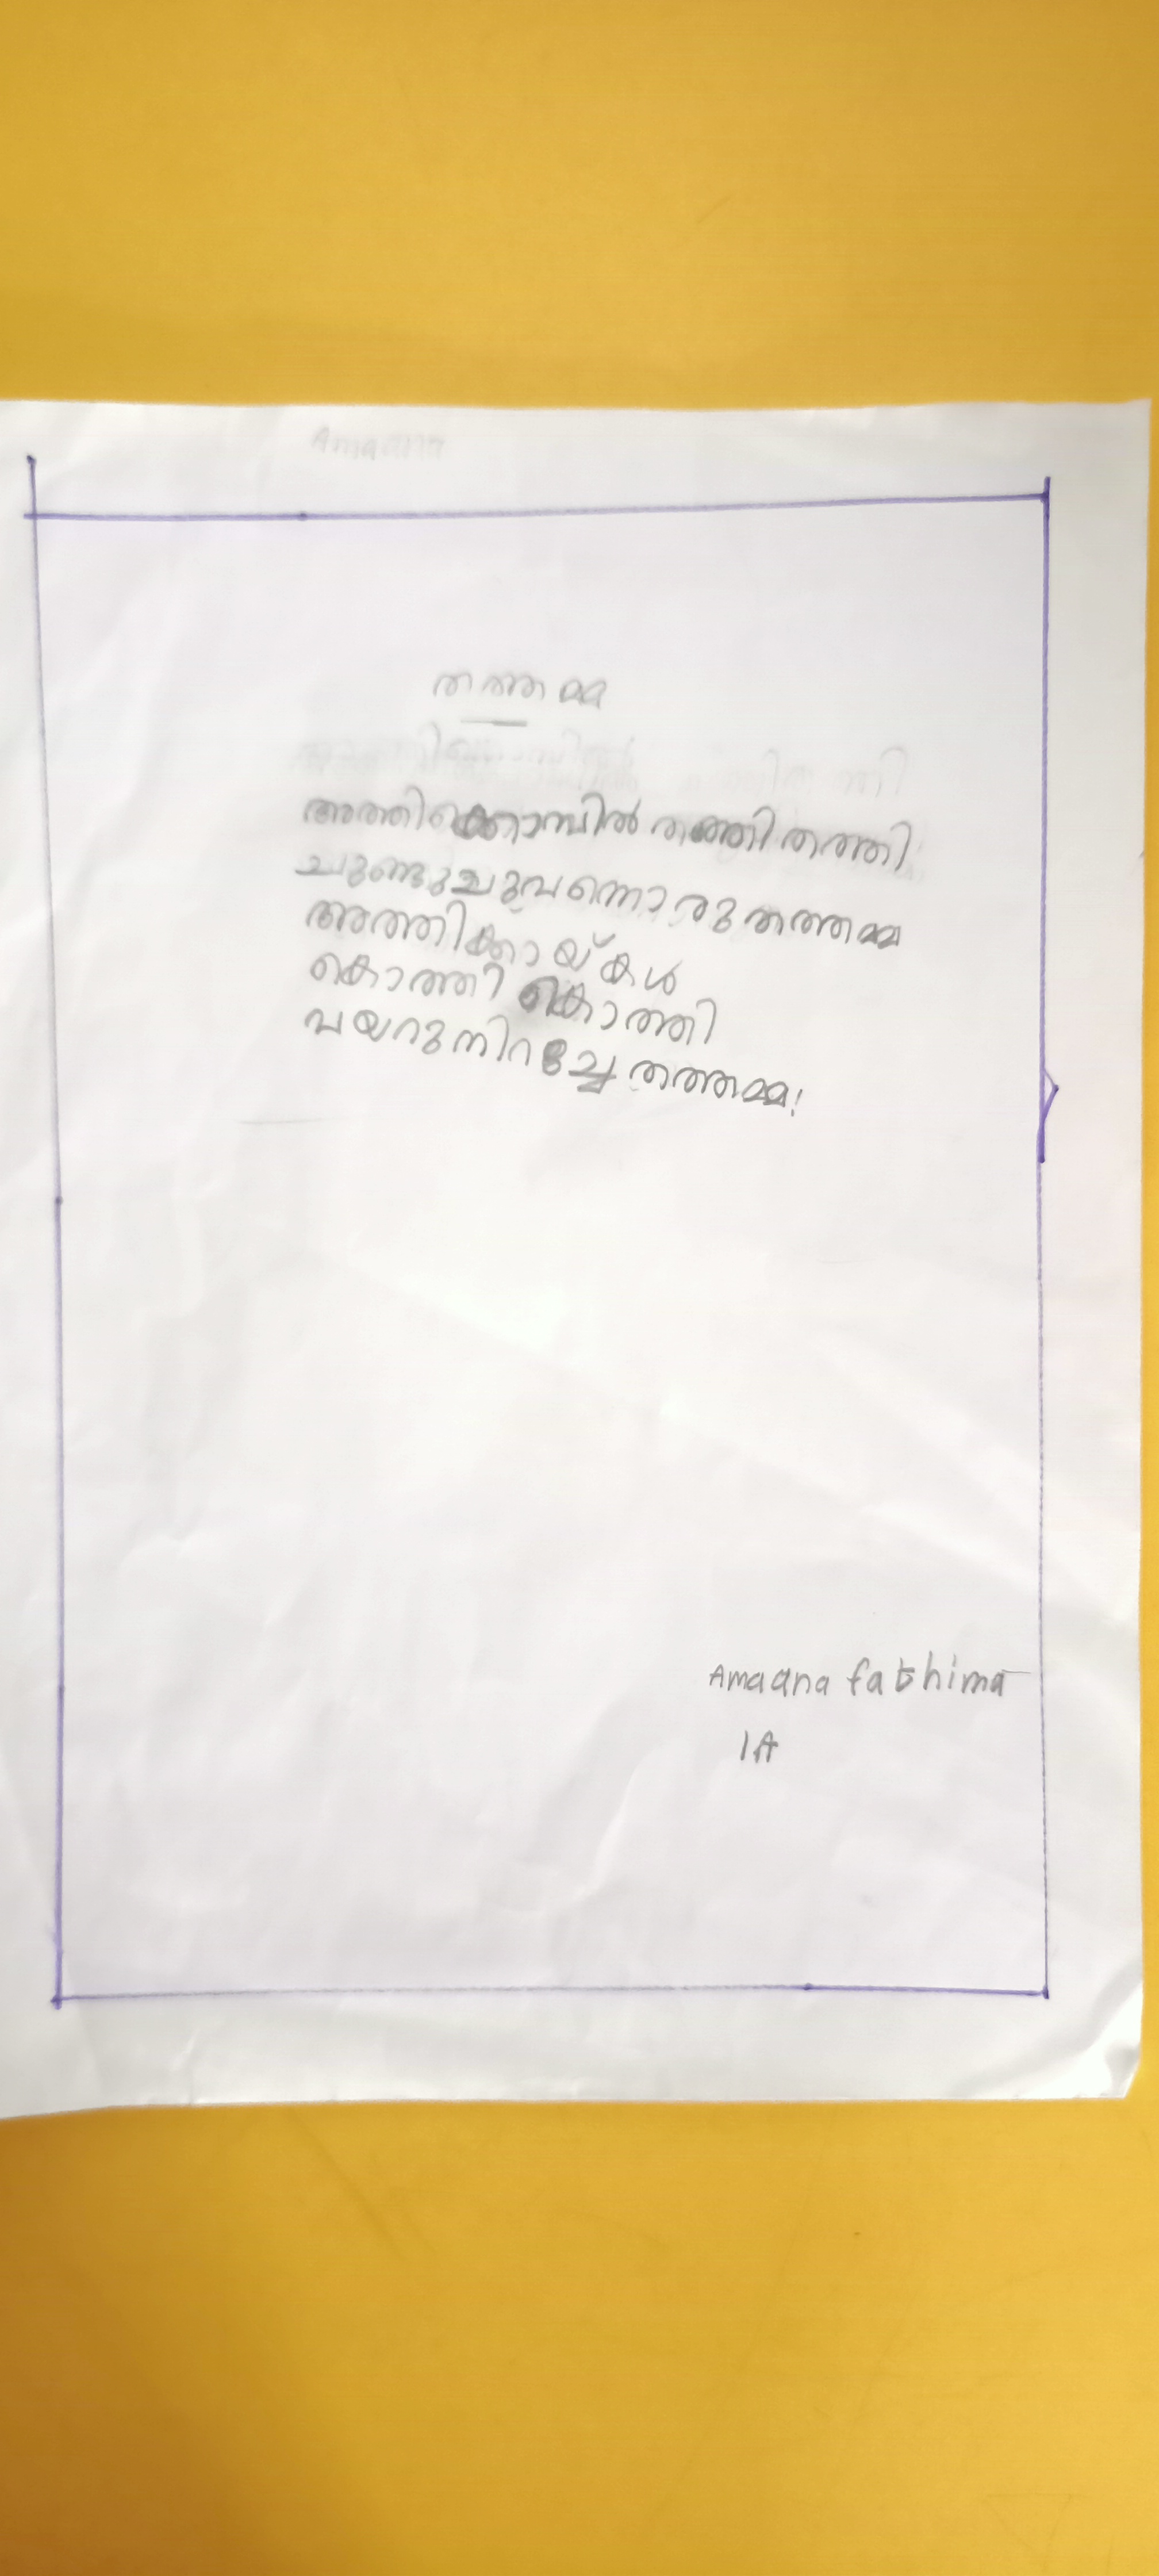 Amaana
തത്തമ്മ
അത്തിക്കൊമ്പിൽ തത്തി തത്തി
ചുണ്ടുചുവന്നൊരു തത്തമ്മ
അത്തിക്കായ്കൾ
കൊത്തി കൊത്തി
പയറു നിറച്ചേ തത്തമ്മ!
Amaana fathima
1A